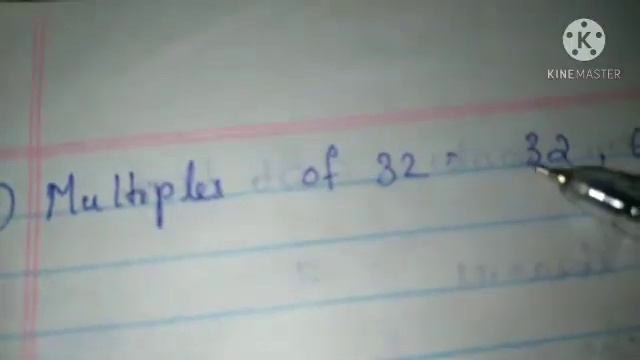 K
KINEMASTER
) Multiples of 32 = 32,